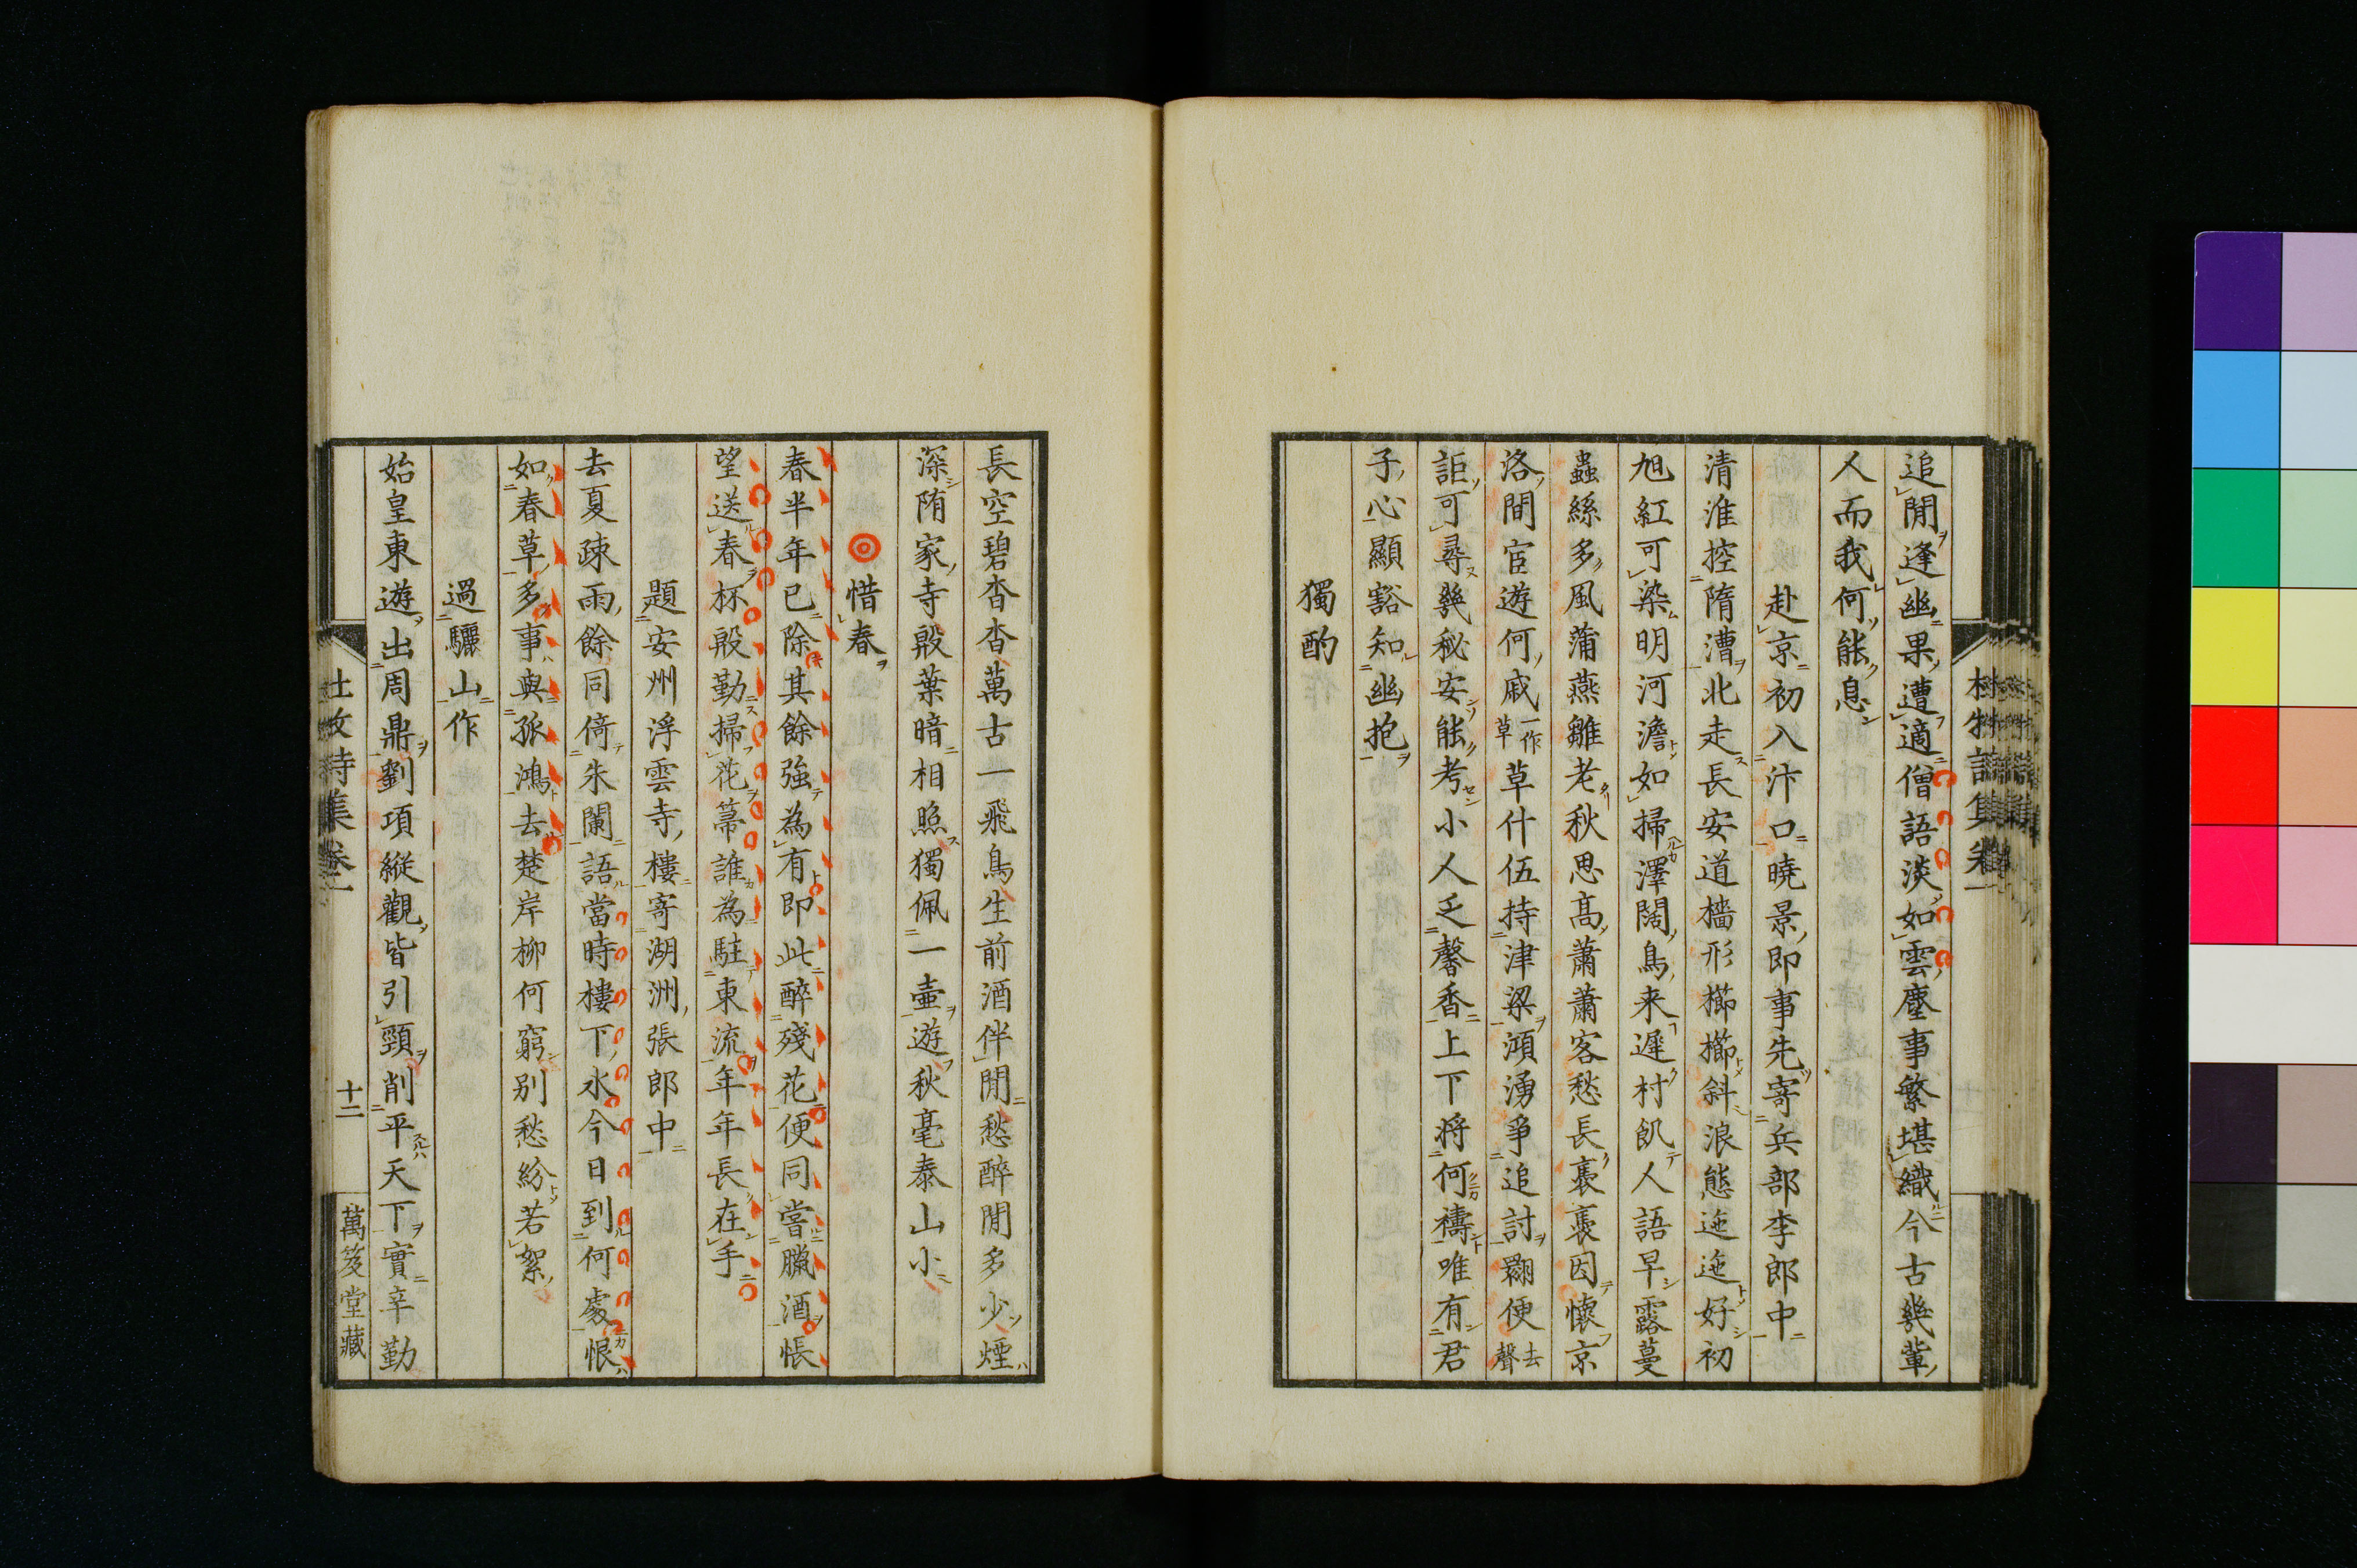 追閒逢幽果遭適僧語淡如雲塵事繁堪織今古幾輩
人而我何能息
赴京初入汴口曉景即事先寄兵部李郎中
清淮控隋漕北走長安道檣形櫛櫛斜浪態迤迤好初
旭紅可染明河澹如掃澤闊鳥来遲村飢人語早露蔓
蟲絲多風蒲燕雛老秋思高蕭蕭客愁長裊裊因懷京
洛間宦遊何戚一作草草什伍持津梁澒湧爭追討翾便去聲
詎可尋幾秘安能考小人乏馨香上下将何禱唯有君
子心顯豁知幽抱
獨酌
長空碧杳杳萬古一飛鳥生前酒伴閒愁醉閒多少煙
深隋家寺殷葉暗相照獨佩一壷遊秋毫泰山小
惜春
春半年已除其餘強為有即此醉殘花便同嘗臘酒悵
望送春杯殷勤掃花箒誰為駐東流年年長在手
題安州浮雲寺樓寄湖洲張郎中
去夏疎雨餘同倚朱闌語當時樓下水今日到何處恨
如春草多事與孤鴻去楚岸柳何窮别愁紛若絮
過驪山作
始皇東遊出周鼎劉項縱觀皆引頸削平天下實辛勤
杜牧詩集卷一
十二
萬笈堂藏